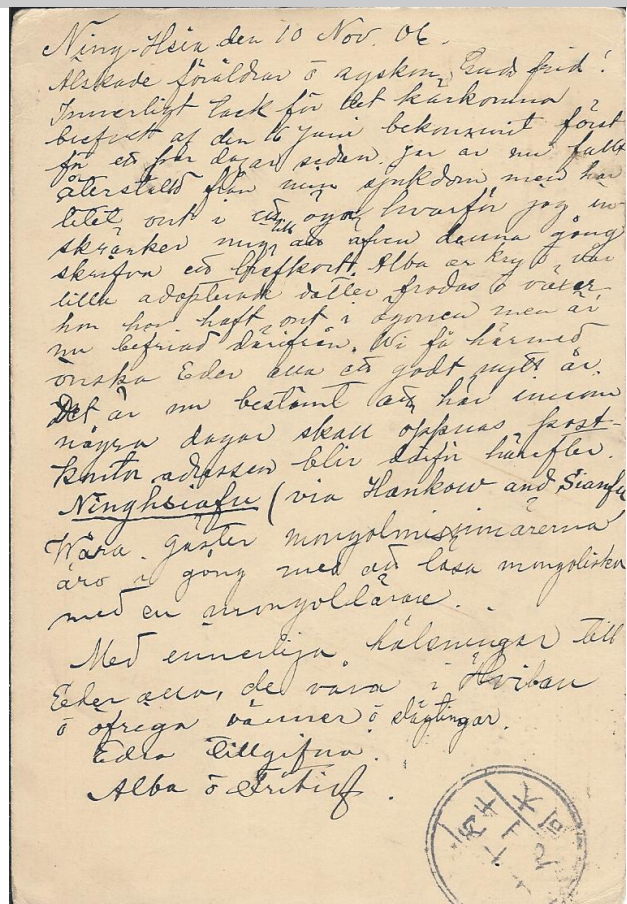 Ning-Hsia den 10 Nov. 06.
Älskade föräldrar o syskon, Guds frid!
Innerligt tack för det kärkomna
brefvet af den 16 Juni bekommit först
för ett par dagar sedan. Jar är nu fullt
återställd från min sjukdom men har
litet ont i ett öga, hvarför jag in-
skränker mig till att äfven denna gång
skrifva ett brefkort. Alba är kry o vår
lilla adopterade dotter frodas o växer
hon har haft ont i ögonen men är
nu befriad därifrån. Vi få härmed
önska Eder alla ett godt nytt år.
Det är nu bestämt att här innom
några dagar skall öppnas post-
kontor adressen blir därför härefter.
Ninghsiafu (via Hankow and Sianfu
Wåra gäster mongolmissionärerna
äro i gång med att läsa mongoliska
med en mongollärare.
Med innerliga hälsningar till
Eder alla, de våra i Hvilan
o öfriga vänner o släktingar.
Edra tillgifna.
Alba o Fritiof.